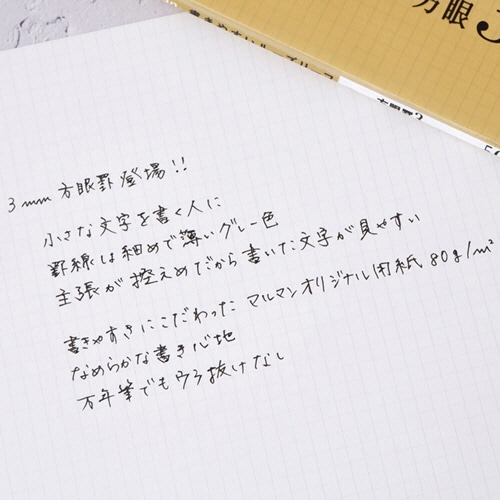 方眼 3
書きやすいルーズリーフ
方眼罫3
3mm 方眼罫登場!!
小さな文字を書く人に
罫線は細めで薄いグレー色
主張が控えめだから書いた文字が見やすい
書きやすさにこだわった マルマンオリジナル用紙 80g/m²
なめらかな書き心地
万年筆でもウラ抜けなし